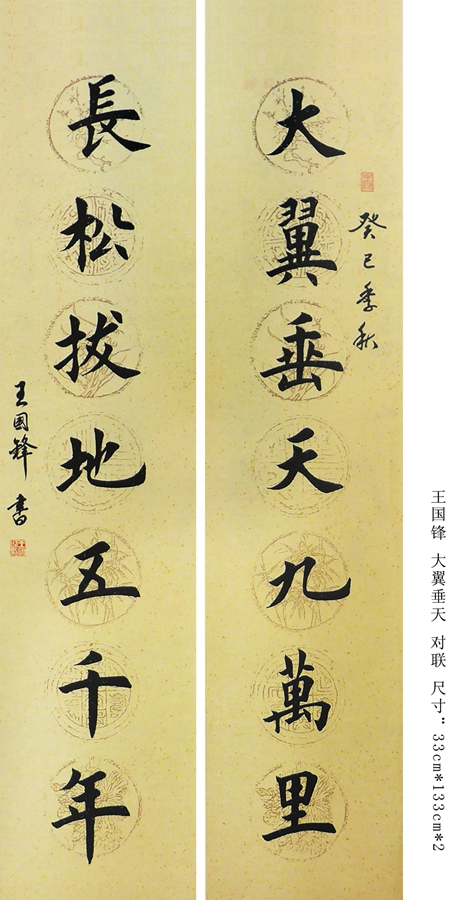 大翼垂天九萬里
癸巳季秋
長松拔地五千年
王國鋒書
王国锋 大翼垂天 对联 尺寸：33cm*133cm*2